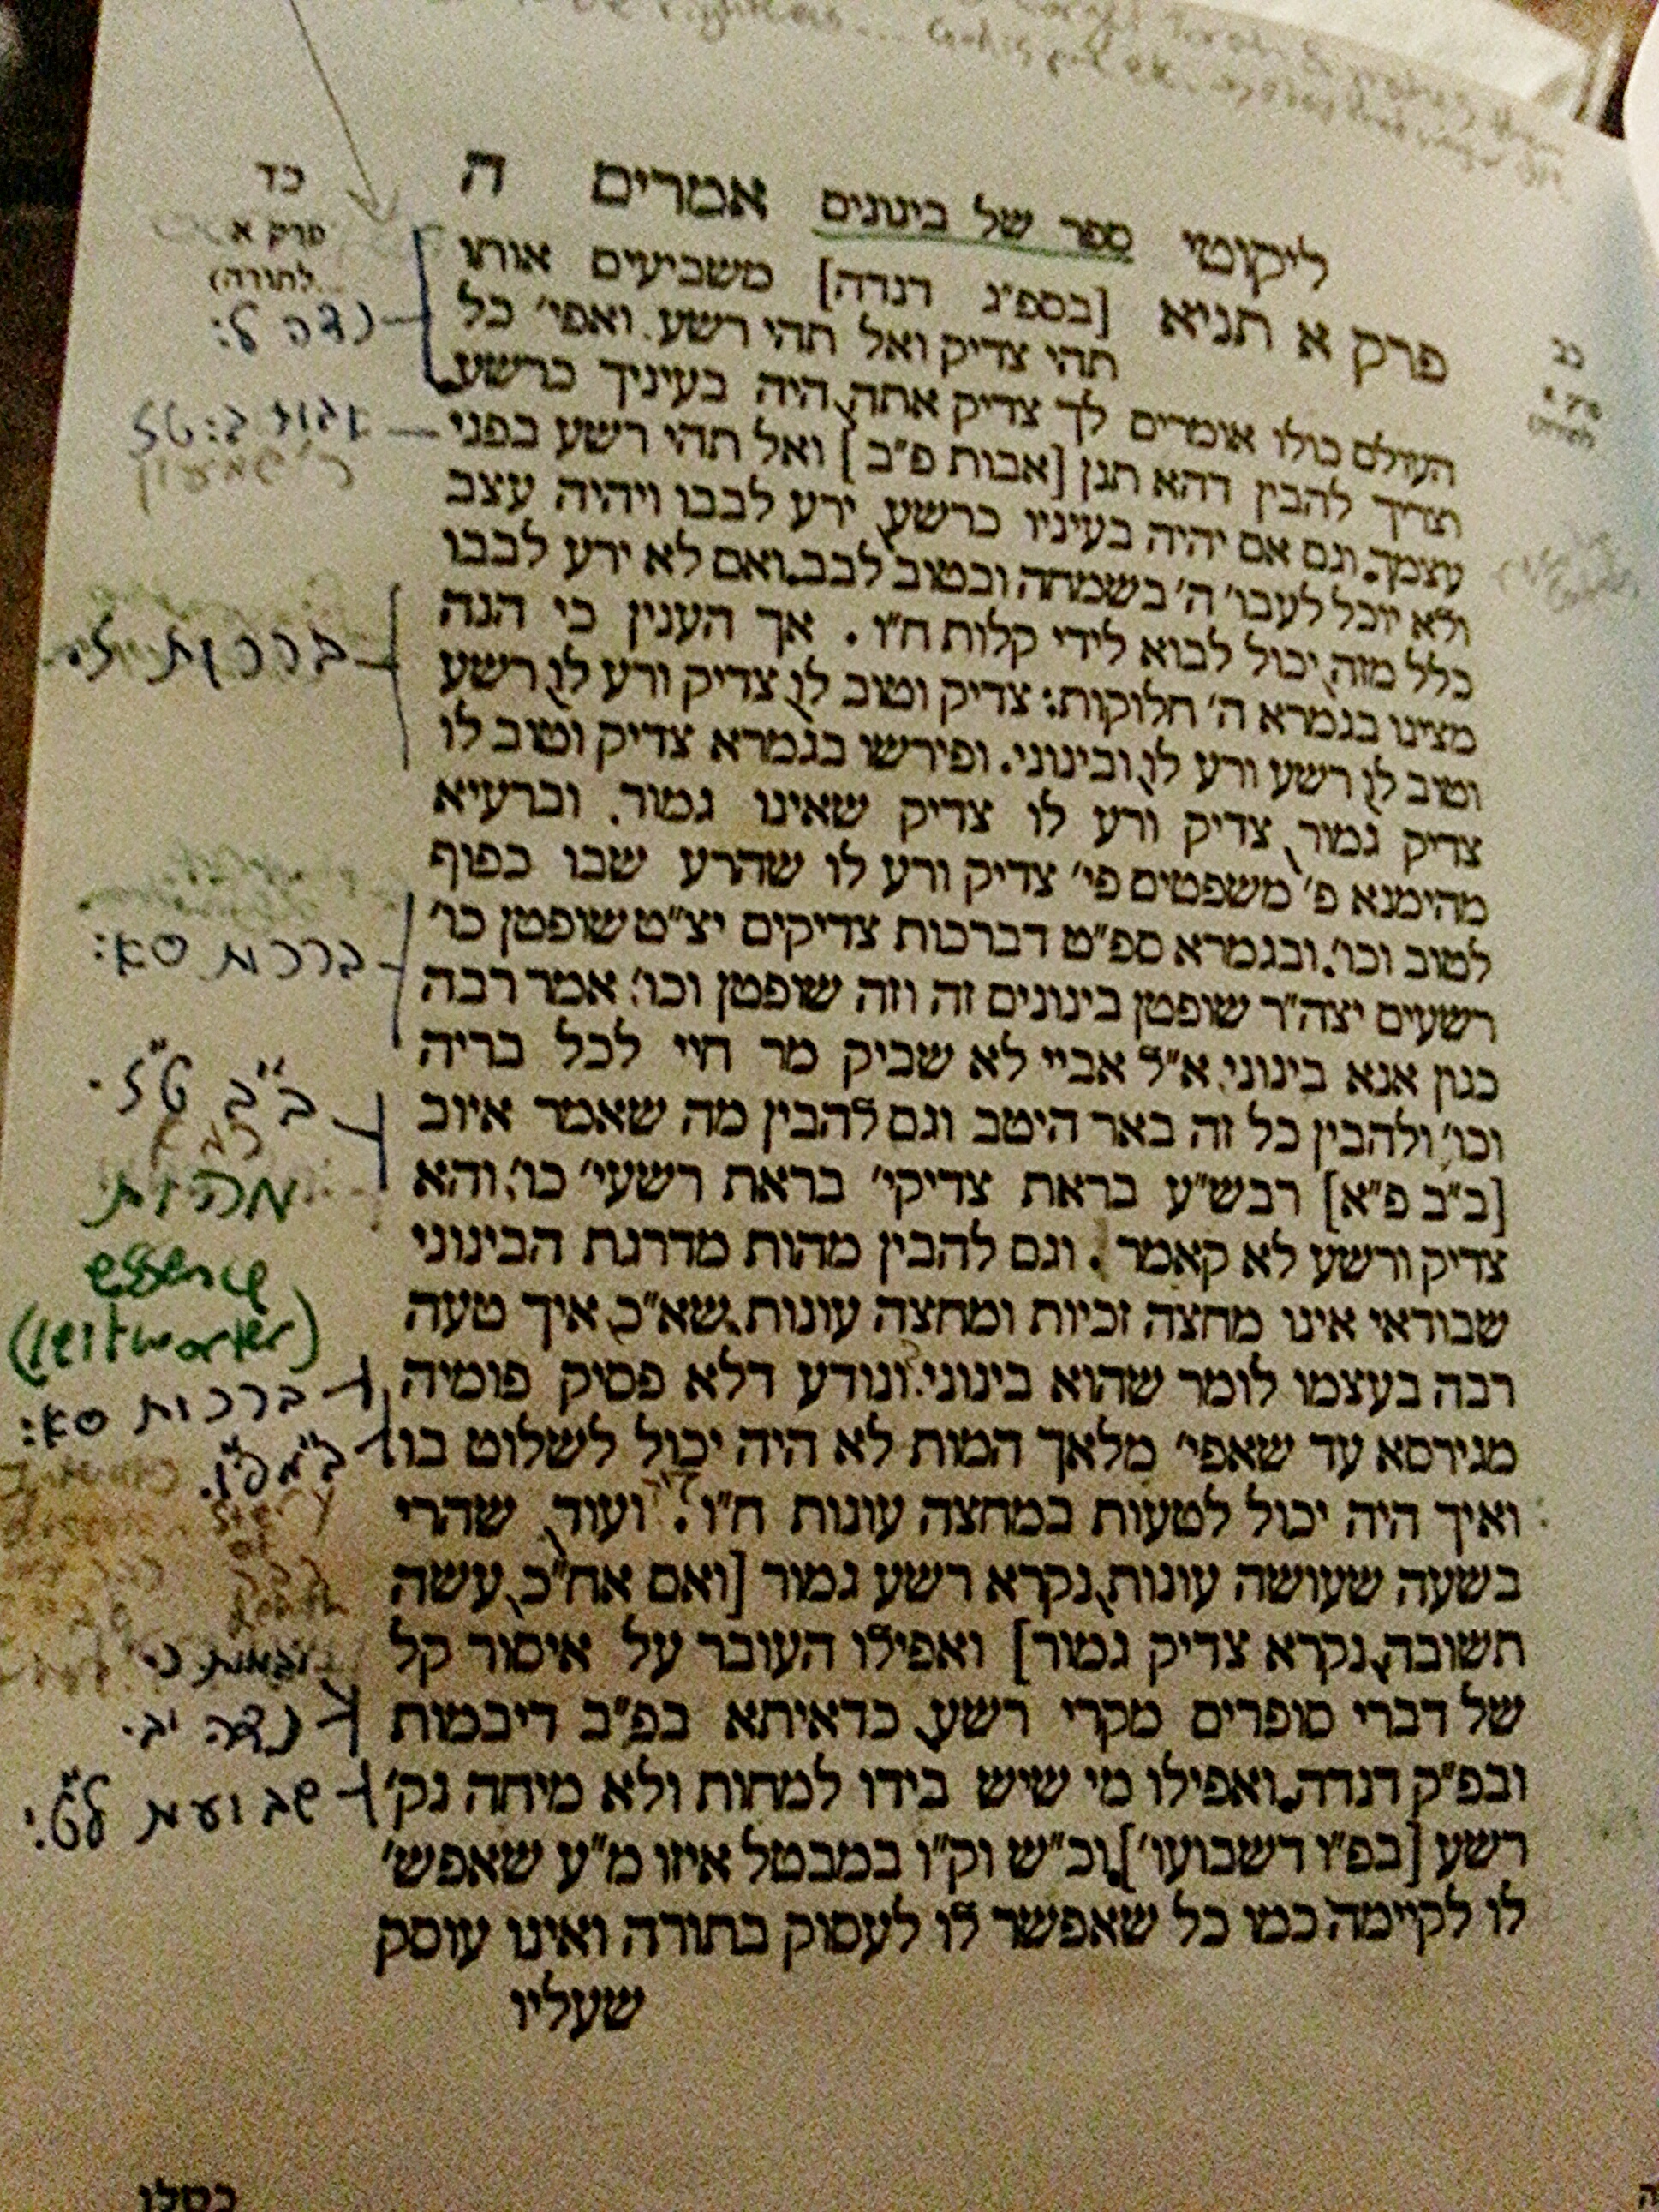 ליקוטי ספר של בינונים אמרים ה
פרק א תניא [בספ״ג דנדה] משביעים אותו
תהי צדיק ואל תהי רשע. ואפי׳ כל
העולם כולו אומרים לך צדיק אתה היה בעיניך כרשע
וצריך להבין דהא תנן [אבות פ״ב] ואל תהי רשע בפני
עצמך. וגם אם יהיה בעיניו כרשע ירע לבבו ויהיה עצב
ולא יוכל לעבו׳ ה׳ בשמחה ובטוב לבב. ואם לא ירע לבבו
כלל מזה יכול לבוא לידי קלות ח״ו. אך הענין כי הנה
מצינו בגמרא ה׳ חלוקות: צדיק וטוב לו, צדיק ורע לו, רשע
וטוב לו, רשע ורע לו, ובינוני. ופירשו בגמרא צדיק וטוב לו
צדיק גמור, צדיק ורע לו צדיק שאינו גמור. וברעיא
מהימנא פ׳ משפטים פי׳ צדיק ורע לו שהרע שבו כפוף
לטוב וכו׳. ובגמרא ספ״ט דברכות צדיקים יצ״ט שופטן כו׳
רשעים יצה״ר שופטן בינונים זה וזה שופטן וכו׳. אמר רבה
כגון אנא בינוני. א״ל אביי לא שביק מר חיי לכל בריה
וכו׳. ולהבין כל זה באר היטב וגם להבין מה שאמר איוב
[ב״ב פ״א] רבש״ע בראת צדיקי׳ בראת רשעי׳ כו׳. והא
צדיק ורשע לא קאמר. וגם להבין מהות מדרגת הבינוני
שבודאי אינו מחצה זכיות ומחצה עונות. שא״כ, איך טעה
רבה בעצמו לומר שהוא בינוני. ונודע דלא פסיק פומיה
מגירסא עד שאפי׳ מלאך המות לא היה יכול לשלוט בו
ואיך היה יכול לטעות במחצה עונות ח״ו. ועוד, שהרי
בשעה שעושה עונות, נקרא רשע גמור [ואם אח״כ, עשה
תשובה, נקרא צדיק גמור] ואפילו העובר על איסור קל
של דברי סופרים מקרי רשע, כדאיתא בפ״ב דיבמות
ובפ״ק דנדה. ואפילו מי שיש בידו למחות ולא מיחה נק׳
רשע [בפ״ו דשבועו׳] וכ״ש וק״ו במבטל איזו מ״ע שאפש׳
לו לקיימה כמו כל שאפשר לו לעסוק בתורה ואינו עוסק
שעליו
כד
פרק א
...לתורה)
נדה ל:
אבות ב:
ר׳ שמעון
ברכות
ברכות סא:
ב״ב
מהות
essence
(leitworter)
ברכות סא:
ב״מ פ״ו.
story
of
יבמות כ.
נדה יב.
שבועות ל״ט:
כסלו